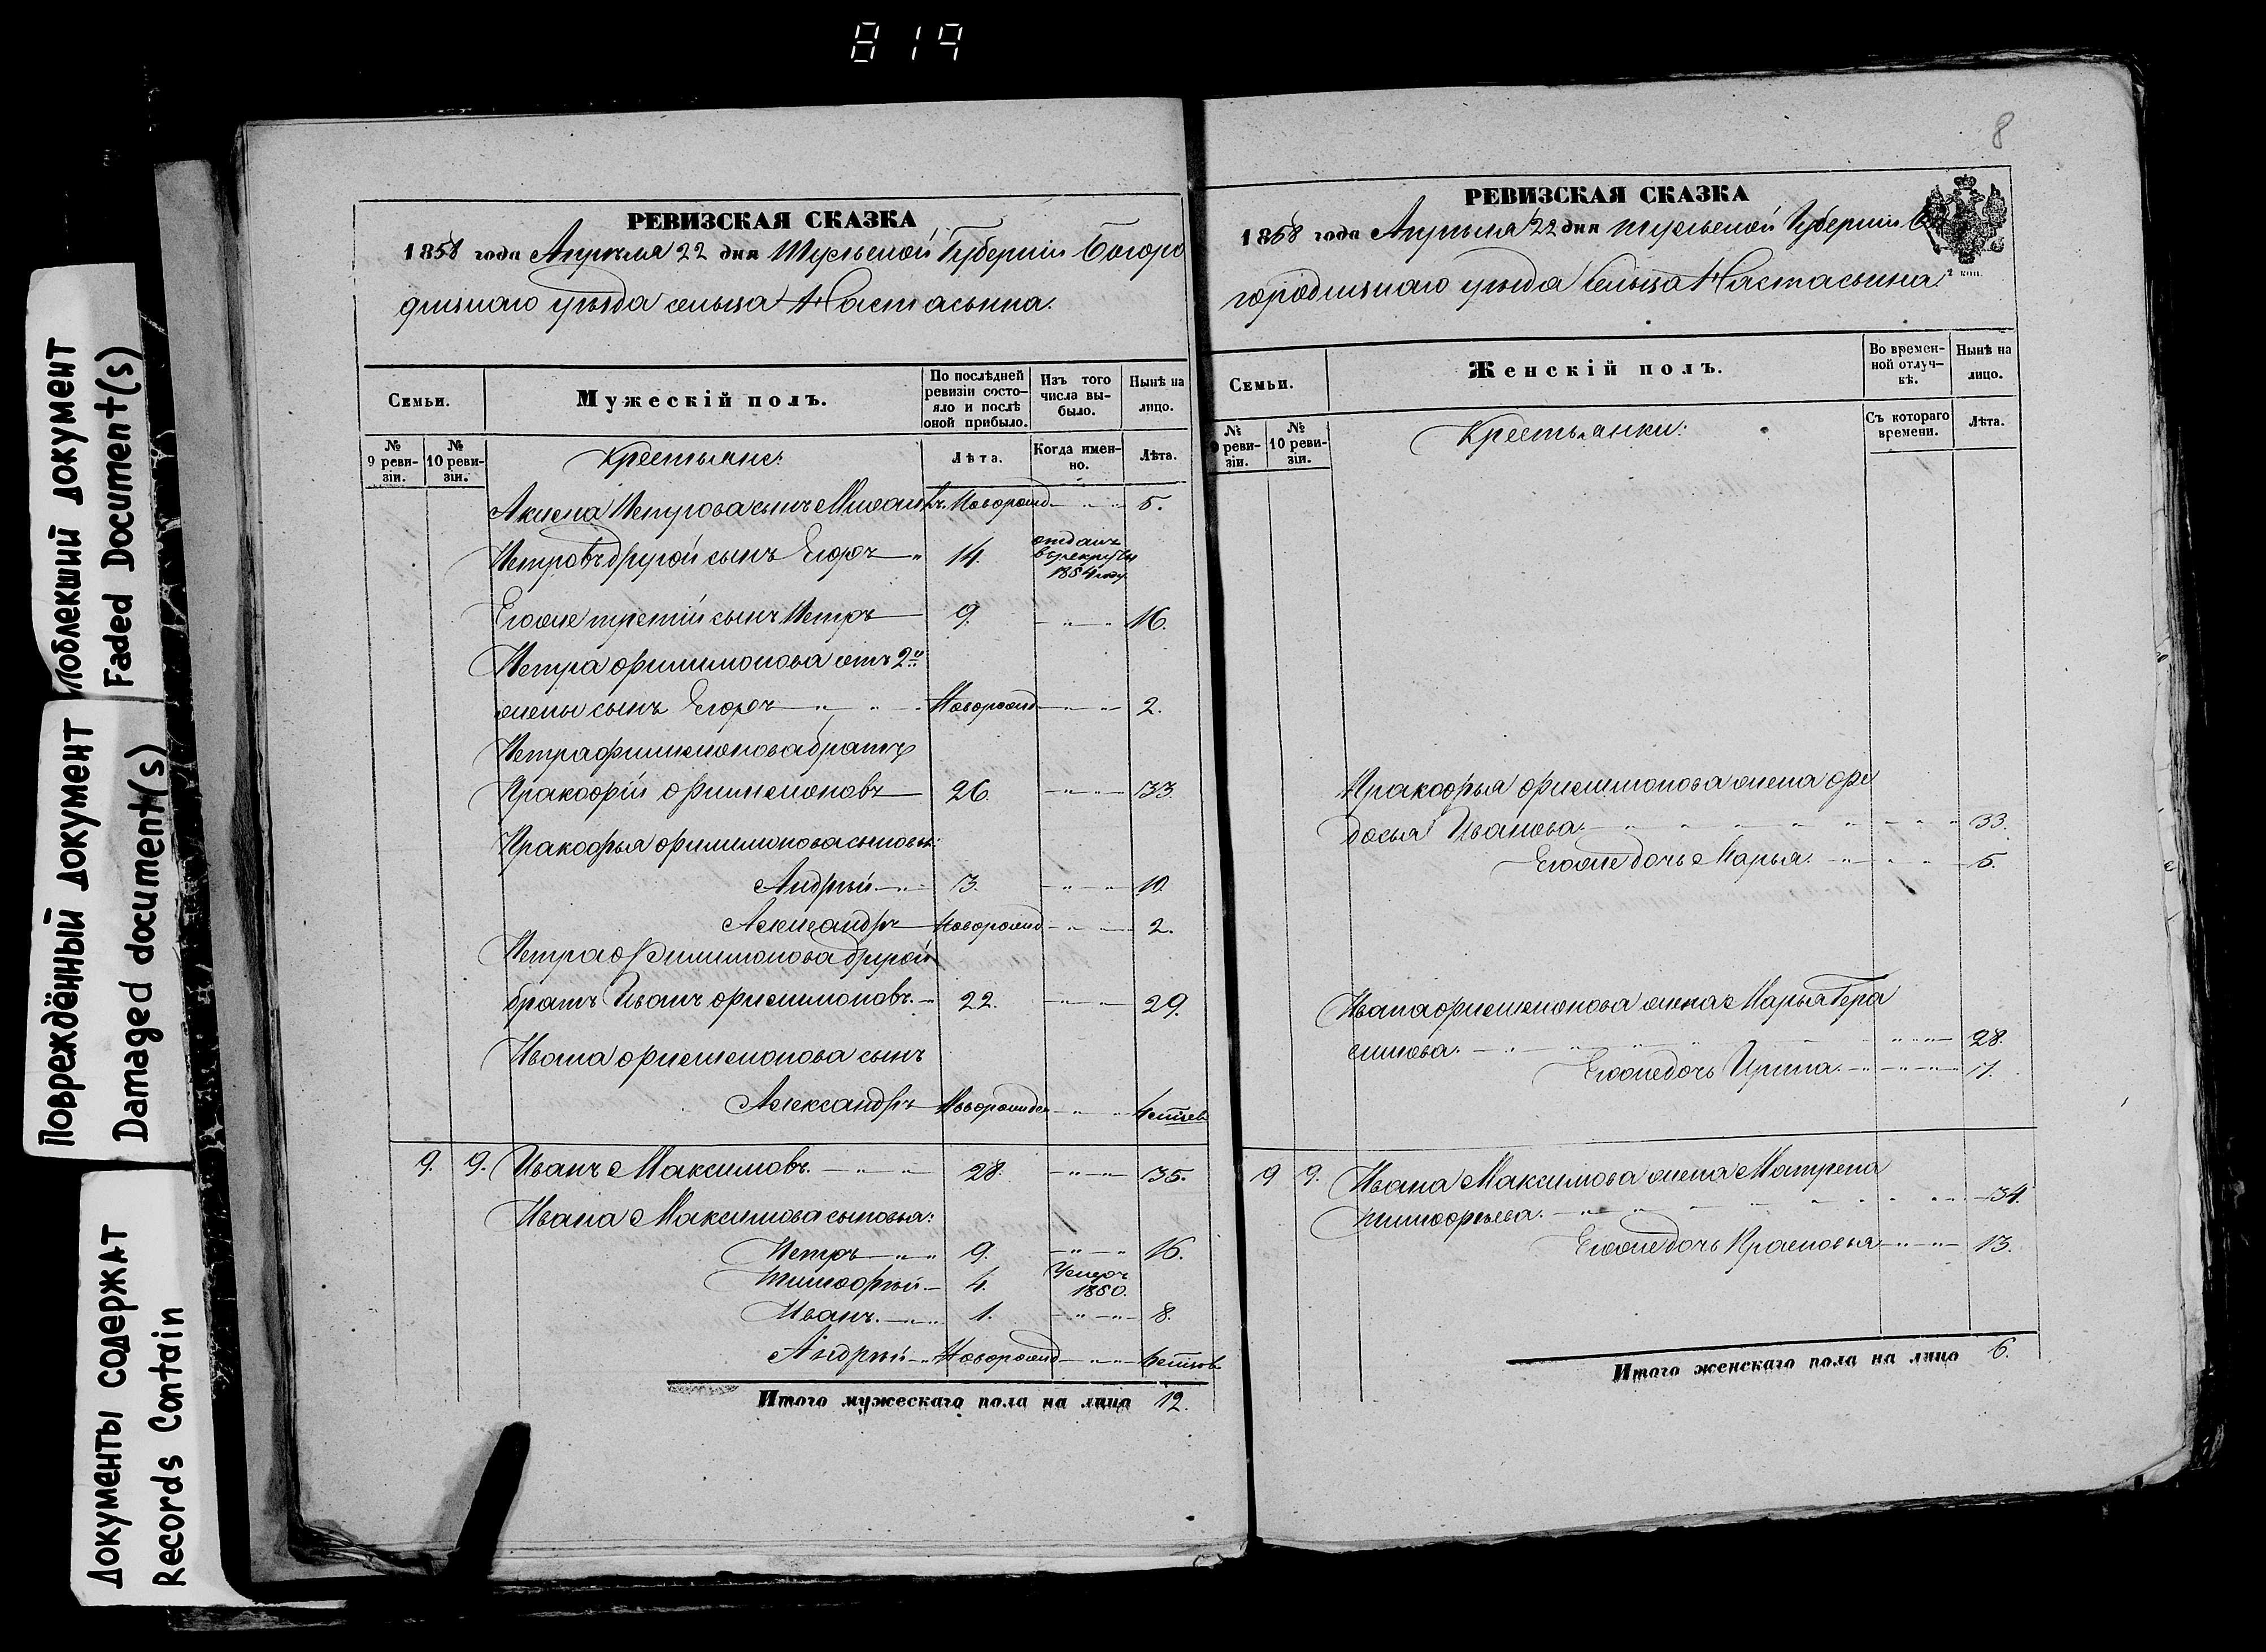 819
Поблекший документ
Faded Document(s)
Повреждённый документ
Damaged document(s)
Документы содержат
Records Contain
РЕВИЗСКАЯ СКАЗКА
1858 года Апрѣля 22 дня Тульской Губерніи Богоро
дицкаго уѣзда сельца Настасьина.
Семьи.
Мужескій полъ.
По послѣдней ревизіи состояло и послѣ оной прибыло.
Изъ того числа выбыло.
Нынѣ на лицо.
№ 9 ревизіи.
№ 10 ревизіи.
Крестьяне:
Лѣта.
Когда именно.
Лѣта.
Петровъ другой сынъ Егоръ 14. отданъ въ рекруты 1854 году
Его же третій сынъ Петръ 9. 16.
Петра Филимонова отъ 2й
жены сынъ Егоръ Новорожд 2.
Петра Филимонова братъ
Пракофій Филимоновъ 26. 33.
Пракофья Филимонова сыновья:
Андрѣй 3. 10.
Александръ Новорожд 2.
Петра Филимонова другой
братъ Иванъ Филимоновъ. 22. 29.
Ивана Филимонова сынъ
Александръ Новорожден
9. 9. Иванъ Максимовъ. 28. 35.
Ивана Максимова сыновья:
Петръ 9. 16.
Тимофѣй 4. Умеръ 1850.
Иванъ. 1. 8.
Андрѣй Новорожд
Итого мужескаго пола на лицо 12.
8
РЕВИЗСКАЯ СКАЗКА
1858 года Апрѣля 22 дня Тульской Губерніи Бо
городицкаго уѣзда сельца Настасьина.
2 коп.
Семьи.
Женскій полъ.
Во временной отлучкѣ.
Нынѣ на лицо.
№ 9 ревизіи.
№ 10 ревизіи.
Крестьянки:
Съ котораго времени.
Лѣта.
Пракофья Филимонова жена Фе
досья Иванова. 33.
Его же дочь Марья. 5.
Ивана Филимонова жена Марья Гера
симова. 28.
Его же дочь Ирина.
9 9. Ивана Максимова жена Матрена
Тимофѣева. 34.
Его же дочь Прасковья 13.
Итого женскаго пола на лицо 6.